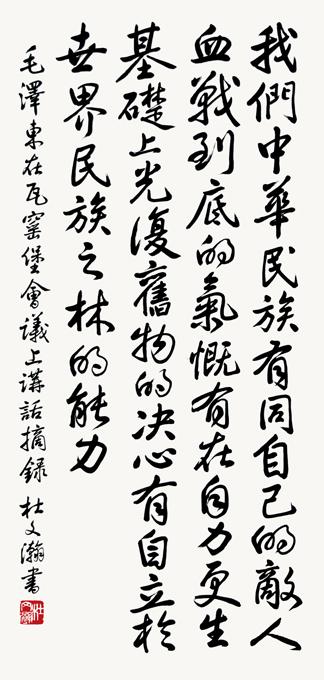 我們中華民族有同自己的敵人
血戰到底的氣慨有在自力更生
基礎上光復舊物的决心有自立於
世界民族之林的能力
毛澤東在瓦窑堡會議上講話摘録 杜文瀚書